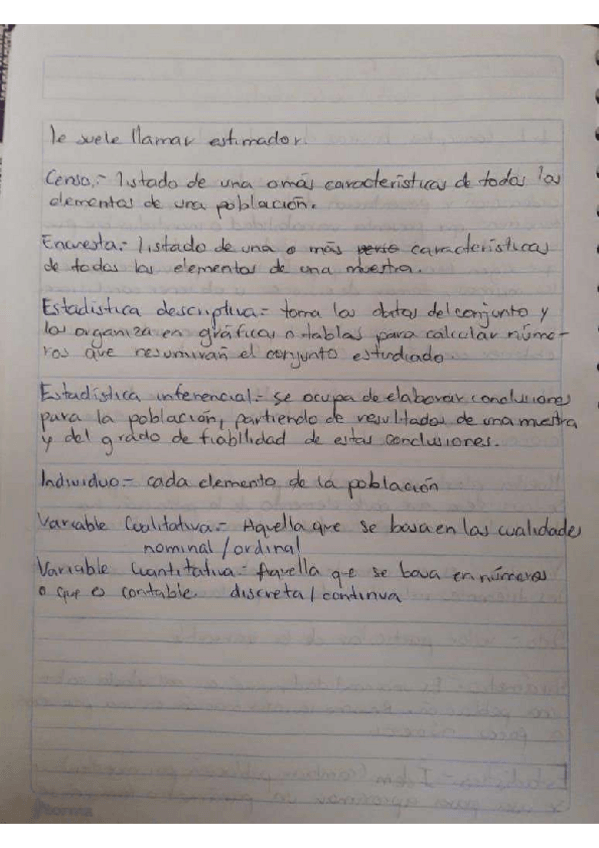 le suele llamar estimador.
Censo.- listado de una o más características de todos los
elementos de una población.
Encuesta.- listado de una o más características
de todos los elementos de una muestra.
Estadística descriptiva.- toma los datos del conjunto y
los organiza en gráficas o tablas para calcular núme-
ros que resumirán el conjunto estudiado
Estadística inferencial.- se ocupa de elaborar conclusiones
para la población, partiendo de resultados de una muestra
y del grado de fiabilidad de estas conclusiones.
Individuo.- cada elemento de la población
Variable Cualitativa.- Aquella que se basa en las cualidades
nominal / ordinal
Variable Cuantitativa.- Aquella qe se basa en números
o que es contable discreta / continua